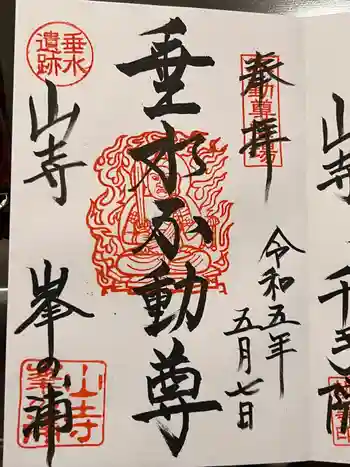 奉拝
令和五年
五月七日
垂水不動尊
垂水
遺跡
山寺
峯の浦
山寺
千手院